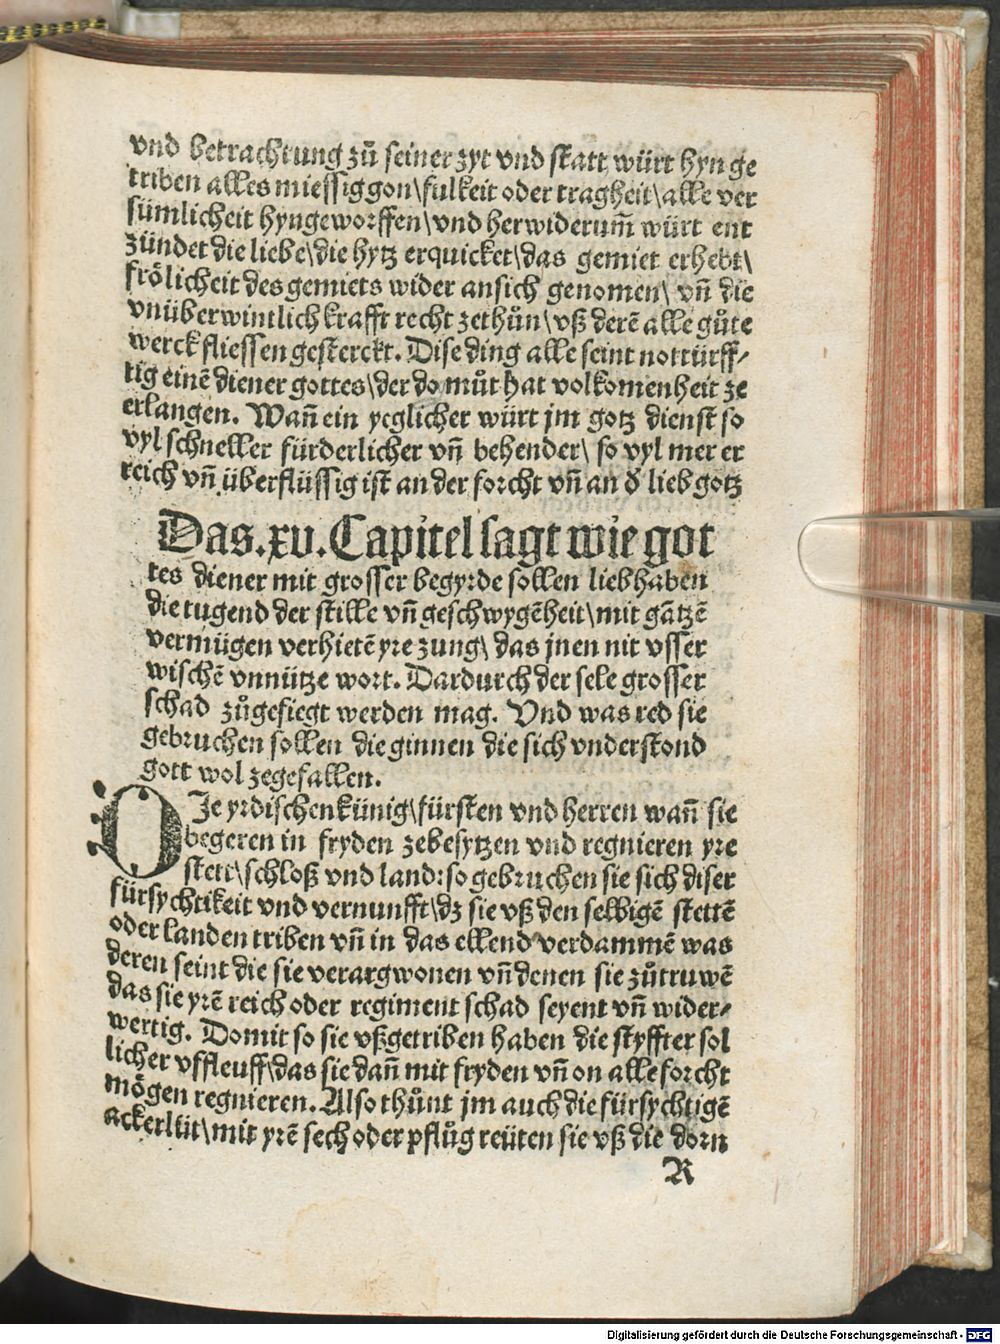 vnd betrachtung zů seiner zyt vnd statt würt hyn ge
triben alles miessiggon\fulkeit oder tragheit\alle ver
sümlicheit hyngeworffen\vnd herwiderum̃ würt ent
zündet die liebe\die hytz erquicket\das gemiet erhebt\
frölicheit des gemiets wider an sich genomen\ vñ die
vnüberwintlich krafft recht zethůn\vß derẽ alle gůte
werck fliessen gesterckt. Dise ding alle seint nottürff⸗
tig einẽ diener gottes\der do můt hat volkomenheit ze
erlangen. Wañ ein yeglicher würt jm gotz dienst so
vyl schneller fürderlicher vñ behender\ so vyl mer er
reich vñ überflüssig ist an der forcht vñ an d̕ lieb gotz
Das.xv.Capitel sagt wie got
tes diener mit grosser begyrde sollen liebhaben
die tugend der stille vñ geschwygẽheit\mit gãtzẽ
vermügen verhietẽ yre zung\ das jnen nit vsser
wischẽ vnnütze wort. Dardurch der sele grosser
schad zůgefiegt werden mag. Vnd was red sie
gebruchen sollen die ginnen die sich vnderstond
gott wol zegefallen.
DJe yrdischen künig\fürsten vnd herren wañ sie
begeren in fryden zebesytzen vnd regnieren yre
stett\schloß vnd land:so gebruchen sie sich diser
fürsychtikeit vnd vernunfft\dz sie vß den selbigẽ stettẽ
oder landen triben vñ in das ellend verdammẽ was
deren seint die sie verargwonen vñ denen sie zůtruwẽ
das sie yrẽ reich oder regiment schad seyent vñ wider⸗
wertig. Domit so sie vßgetriben haben die styffter sol
licher vffleuff\das sie dañ mit fryden vñ on alle forcht
mögen regnieren. Also thůnt jm auch die fürsychtigẽ
ackerlüt\mit yrẽ sech oder pflůg reüten sie vß die dorn
R
Digitalisierung gefördert durch die Deutsche Forschungsgemeinschaft - DFG